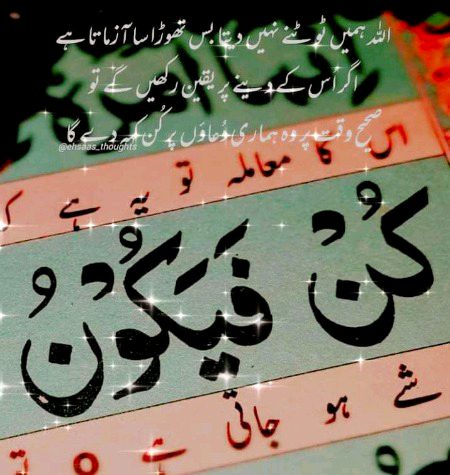 اللہ ہمیں ٹوٹنے نہیں دیتا بس تھوڑا سا آزماتا ہے
اگر اُس کے دینے پر یقین رکھیں گے تو
صحیح وقت پر وہ ہماری دُعاؤں پر کُن کہہ دے گا
@ehsaas_thoughts
اس کا معاملہ تو یہ ہے کہ
كُنْ فَيَكُوْنُ
شے ہو جاتی ہے